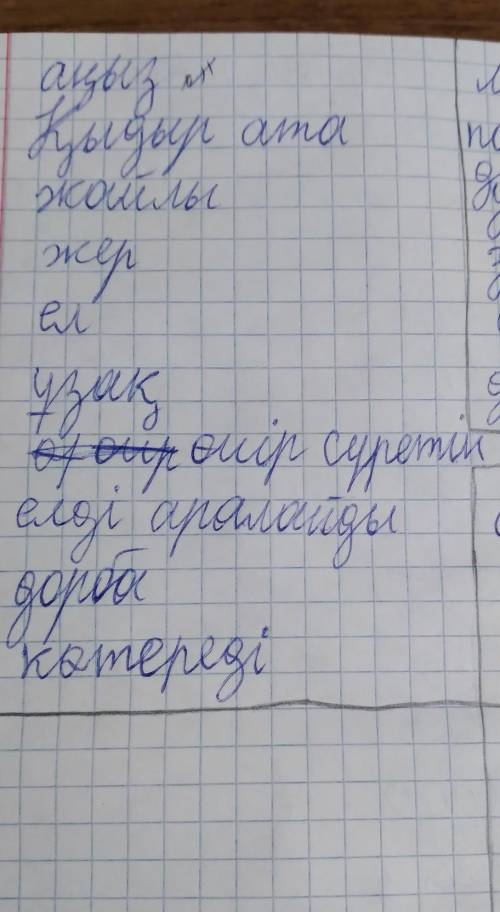 аңыз
Қыдыр ата
жайлы
жер
ел
ұзақ
өмір сүретін
елді аралайды
дорба
көтереді